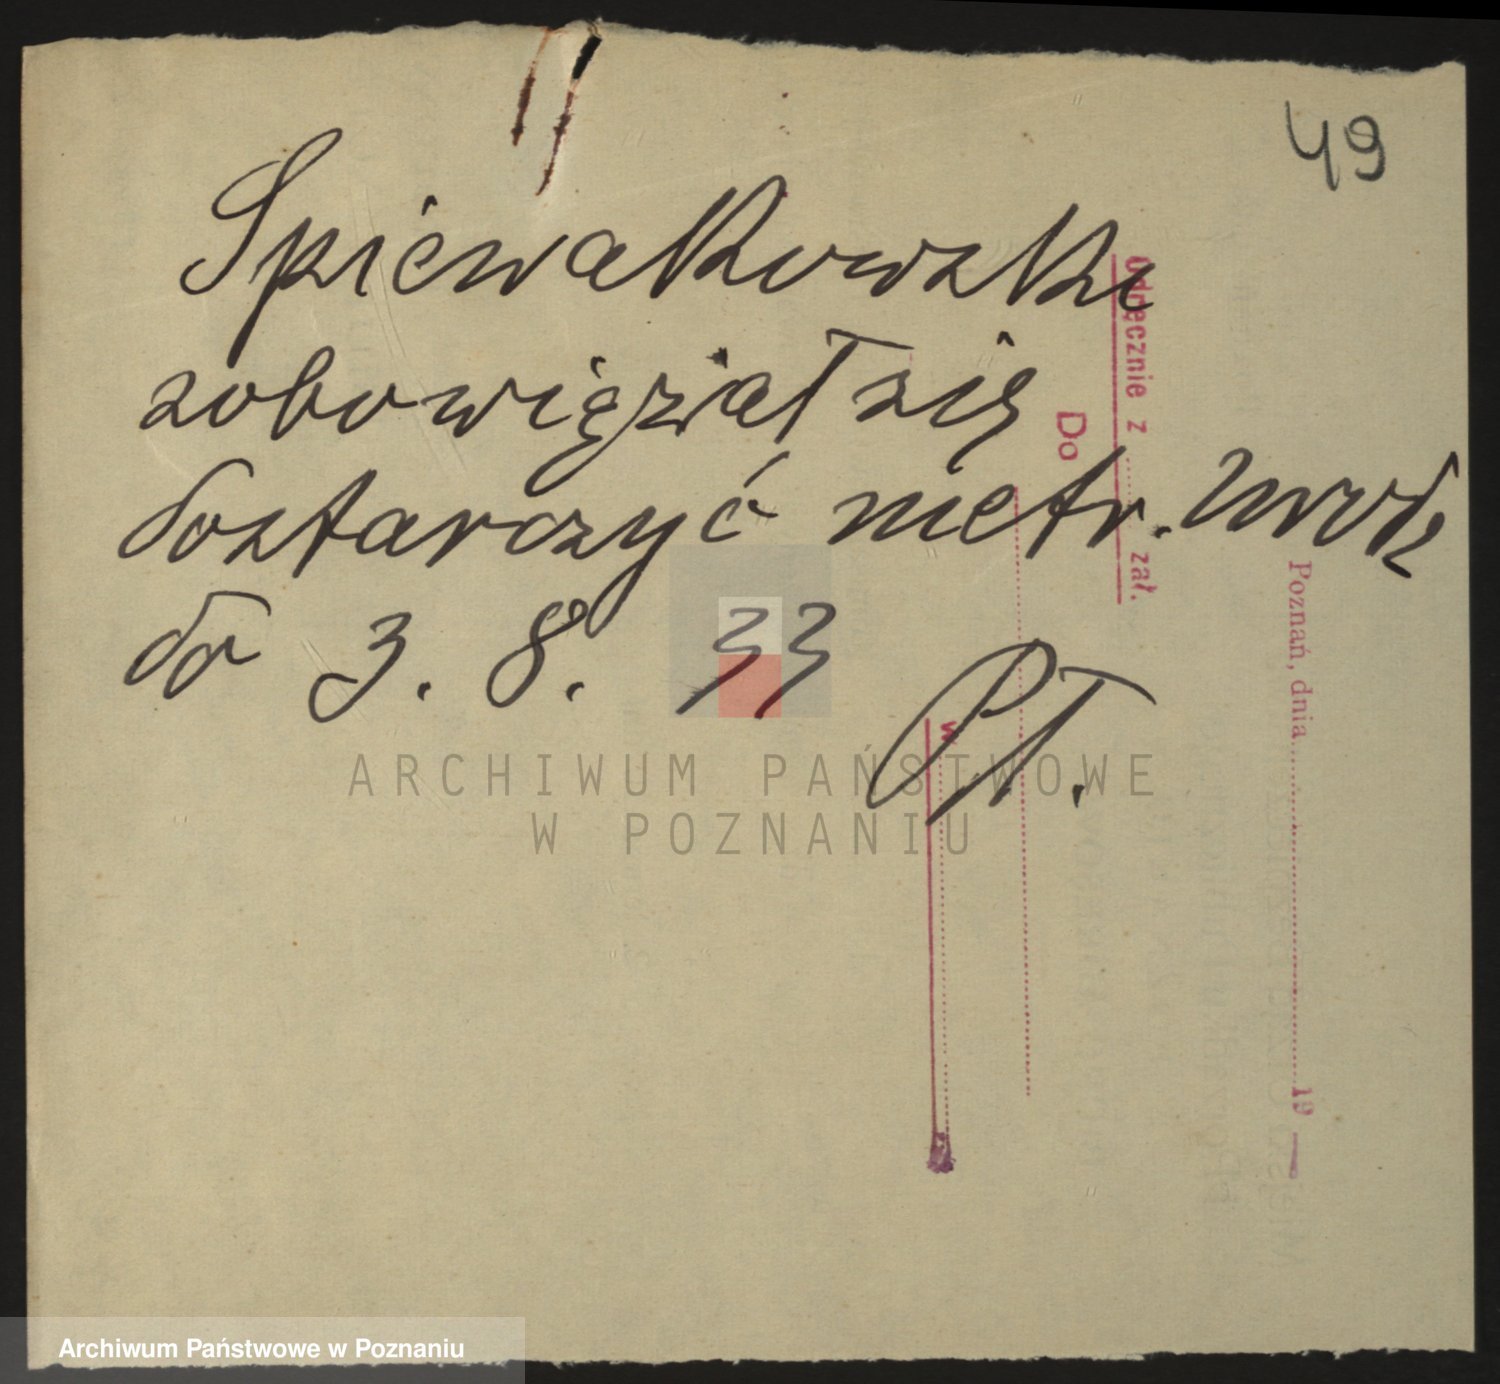 49
Spiewakowski
zobowięział się
dostarczyć metr. urodz
do 3. 8. 33
PT.
Odręcznie z ........ zał.
Do
w
Poznań, dnia ........ 19
ARCHIWUM PAŃSTWOWE
W POZNANIU
Archiwum Państwowe w Poznaniu